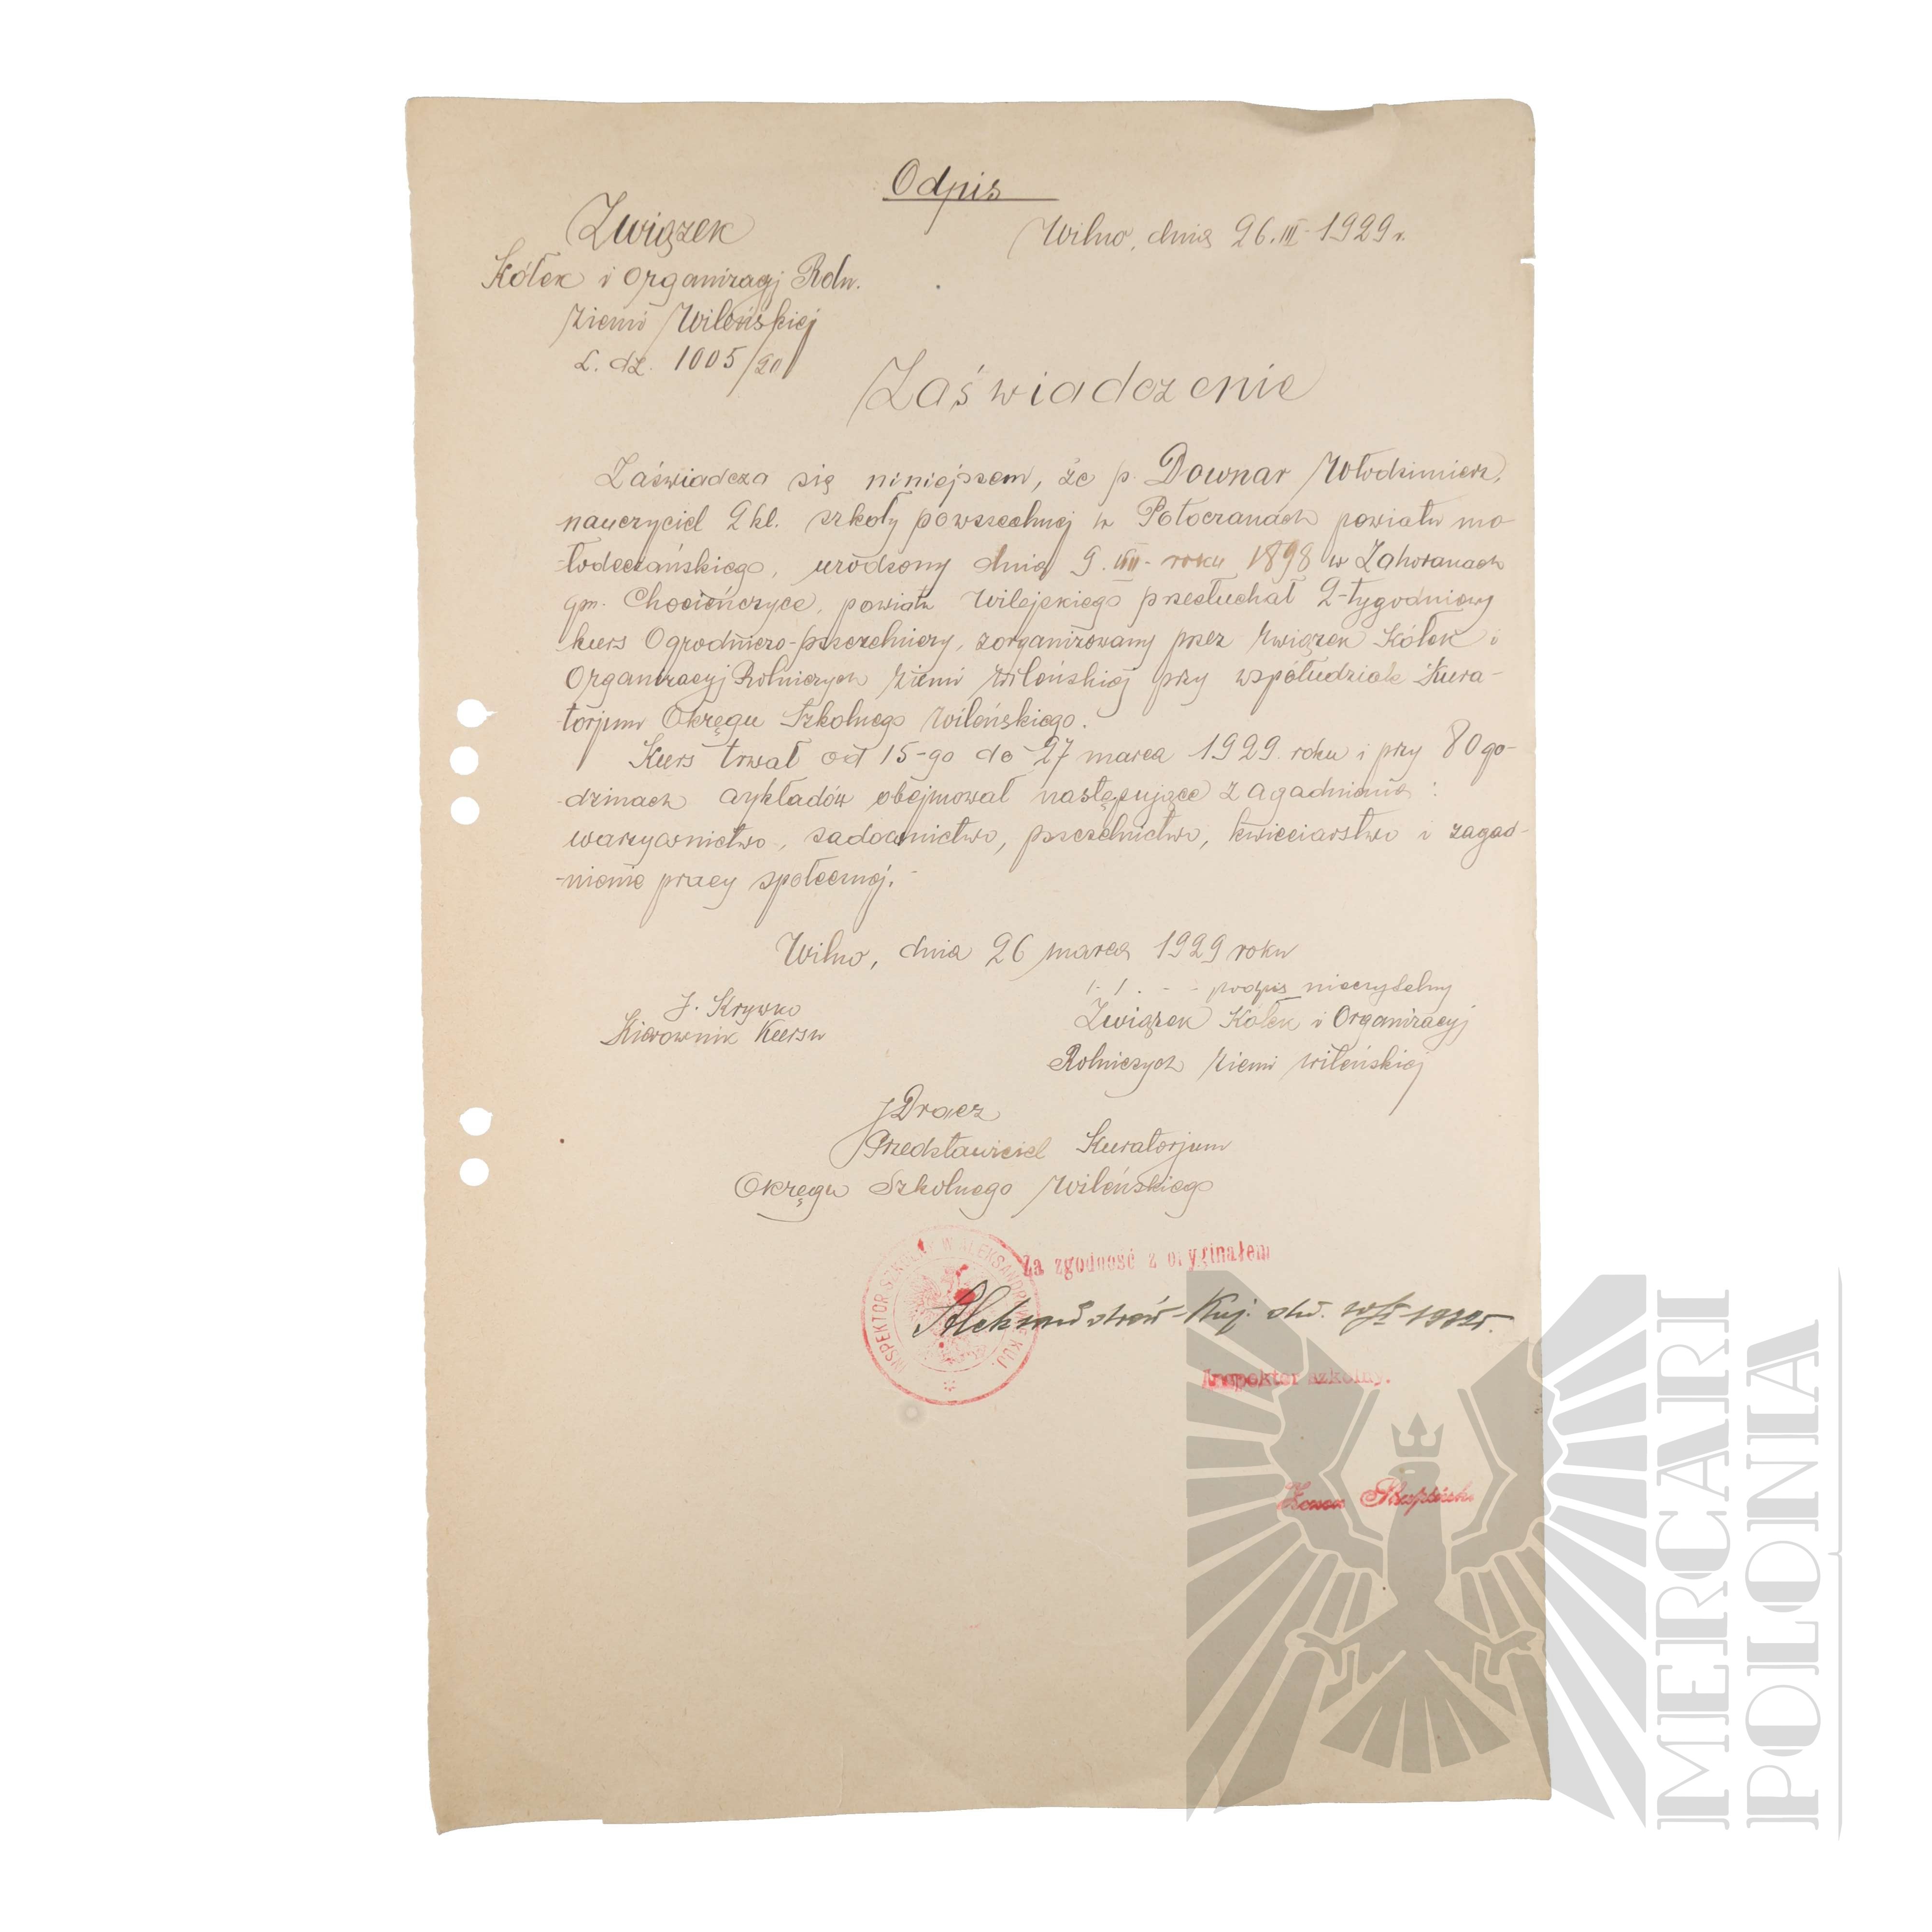 Odpis
Związek
Wilno, dnia 26.III-1929 r.
Kółek i Organizacyj Roln.
Ziemi Wileńskiej
L. dz. 1005/
Zaświadczenie
Zaświadcza się niniejszem, że p. Downar Włodzimierz,
nauczyciel 2 kl. szkoły powszechnej w Potoczanach powiatu mo-
-łodeczańskiego, urodzony dnia 9. roku 1898 w Zahoranach
gm. Chocieńczyce, powiatu Wilejskiego przesłuchał 2-tygodniowy
kurs Ogrodniczo-pszczelniczy, zorganizowany przez Związek Kółek i
Organizacyj Rolniczych Ziemi Wileńskiej przy współudziale Kura-
torjum Okręgu Szkolnego Wileńskiego.
Kurs trwał od 15-go do 27 marca 1929 roku i przy 80 go-
-dzinach wykładów obejmował następujące zagadnienia:
warzywnictwo, sadownictwo, pszczelnictwo, kwieciarstwo i zagad-
-nienie pracy społecznej.-
Wilno, dnia 26 marca 1929 roku
/-/ - - podpis nieczytelny
J. Krywko
Kierownik Kursu
Związek Kółek i Organizacyj
Rolniczych Ziemi Wileńskiej
J Dracz
Przedstawiciel Kuratorjum
Okręgu Szkolnego Wileńskiego
INSPEKTOR SZKOLNY W ALEKSANDROWIE KUJ.
Za zgodność z oryginałem
Aleksandrów-Kuj. dn.
Inspektor szkolny.
MERCARI
POLONIA